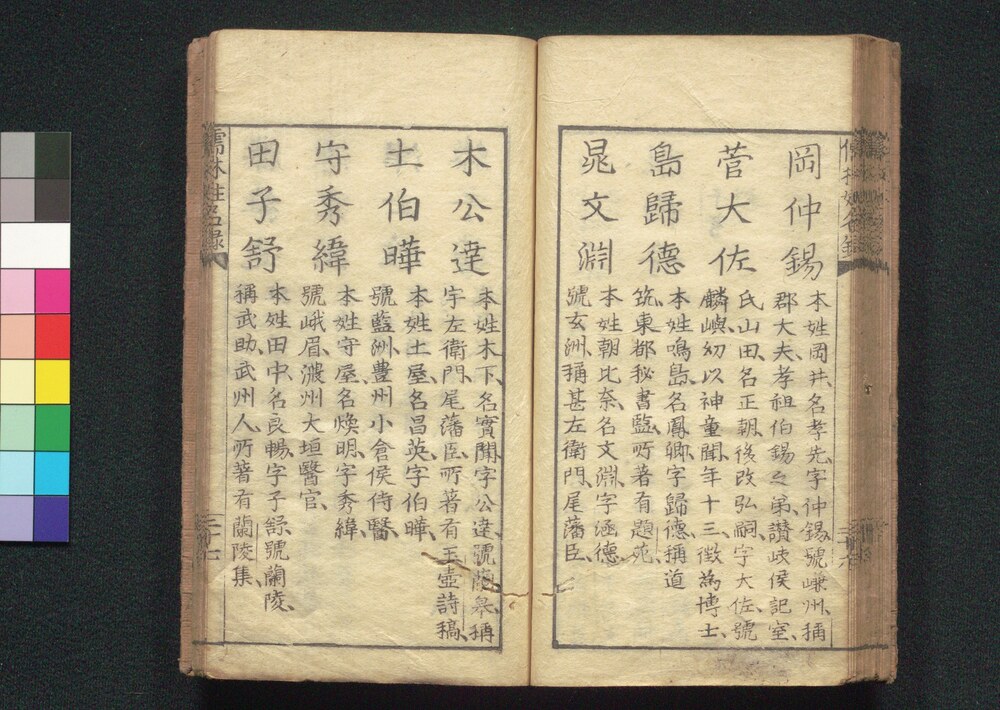 岡仲錫
本姓岡井、名孝先、字仲錫、號嵰州、稱
郡大夫、孝祖伯錫之弟、讃岐侯記室、
菅大佐
氏山田、名正朝、後改弘嗣、字大佐、號
麟嶼、幼以神童聞、年十三、徴為博士、
島歸德
本姓鳴島、名鳳卿、字歸德、稱道
筑、東都秘書監、所著有題苑、
晁文淵
本姓朝比奈、名文淵、字涵德、
號玄洲、稱甚左衛門、尾藩臣、
木公達
本姓木下、名實聞、字公達、號蘭皐、稱
宇左衛門、尾藩臣、所著有玉壺詩稿、
土伯曄
本姓土屋、名昌英、字伯曄、
號藍洲、豊州小倉侯侍醫、
守秀緯
本姓守屋、名煥明、字秀緯、
號峨眉、濃州大垣醫官、
田子舒
本姓田中、名良暢、字子舒、號蘭陵、
稱武助、武州人、所著有蘭陵集、
儒林姓名錄
二十七